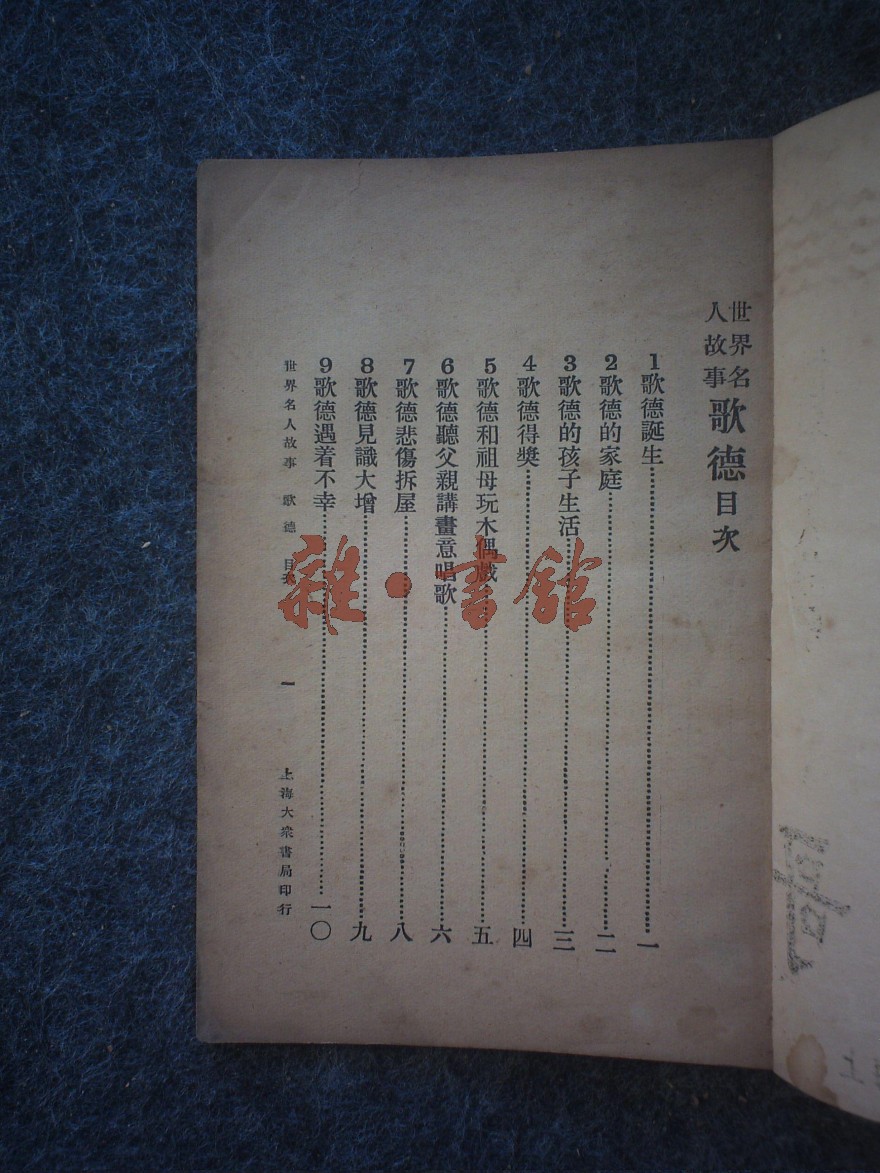 世界名人故事 歌德目次
1歌德誕生…………一
2歌德的家庭…………二
3歌德的孩子生活…………三
4歌德得獎…………四
5歌德和祖母玩木偶戲…………五
6歌德聽父親講畫意唱歌…………六
7歌德悲傷拆屋…………八
8歌德見識大增…………九
9歌德遇着不幸…………一〇
世界名人故事 歌德 目次 一 上海大衆書局印行
雜·書館